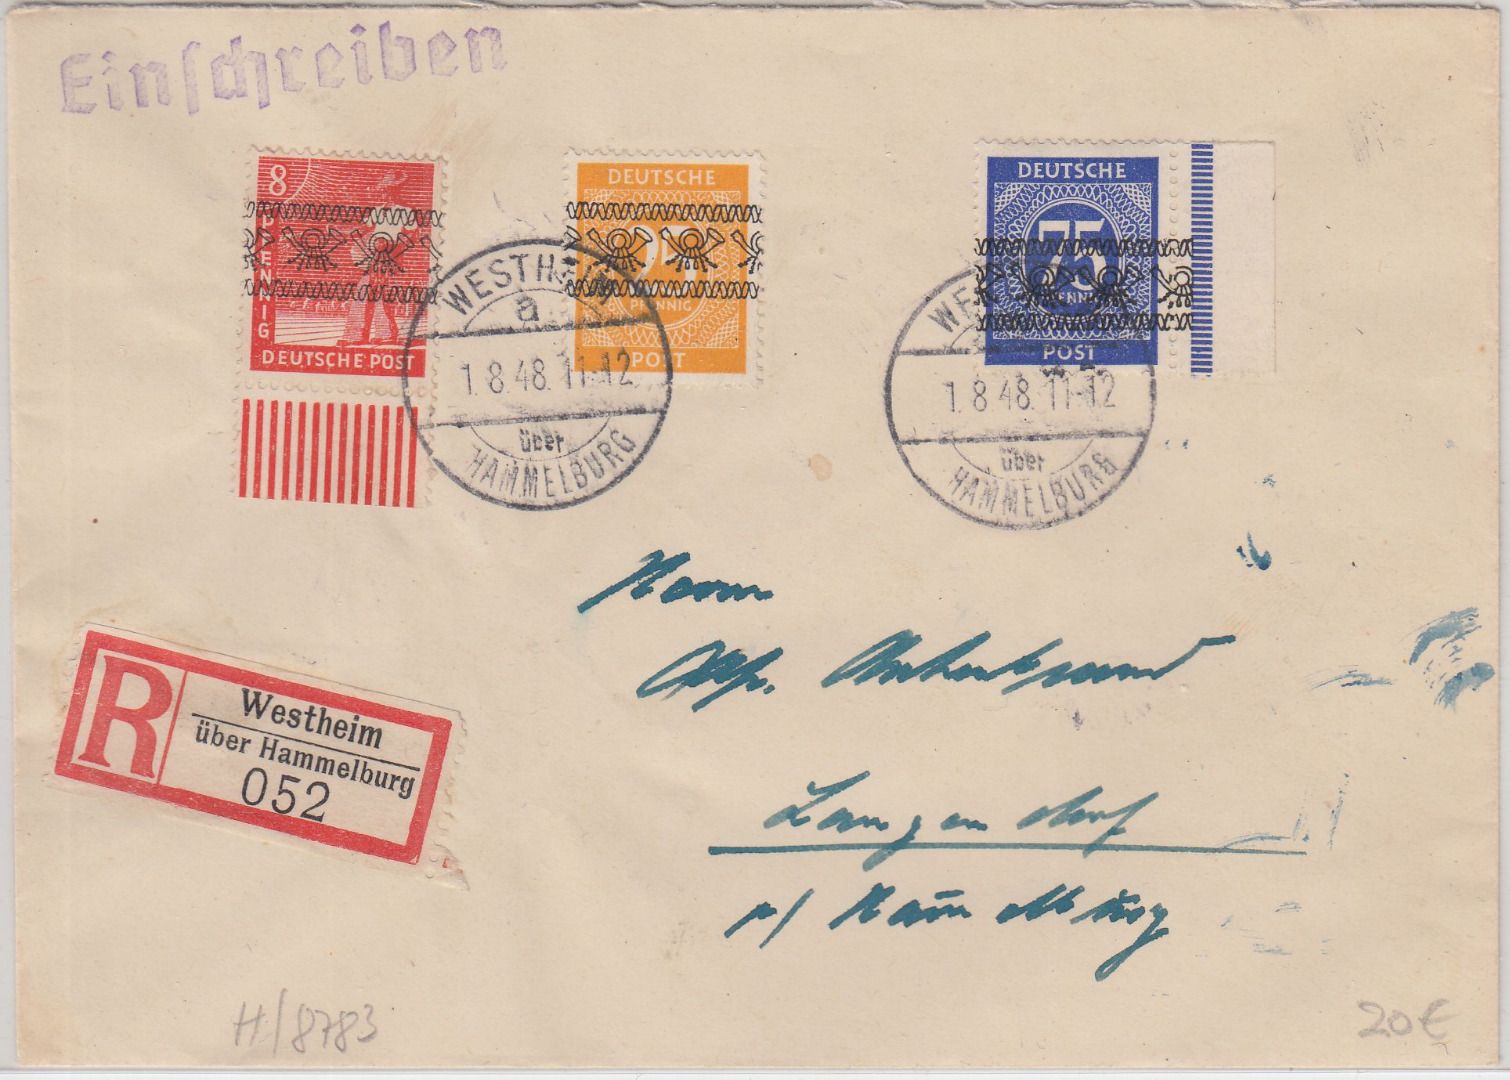 Einschreiben
8
PFENNIG
DEUTSCHE POST
DEUTSCHE
25
PFENNIG
POST
DEUTSCHE
75
PFENNIG
POST
WESTHEIM
a
1.8.48.11-12
über
HAMMELBURG
WE
1.8 48. 11-12
über
HAMMELBURG
Herrn
R
Westheim
über Hammelburg
052
Langendorf
H/8783
20€